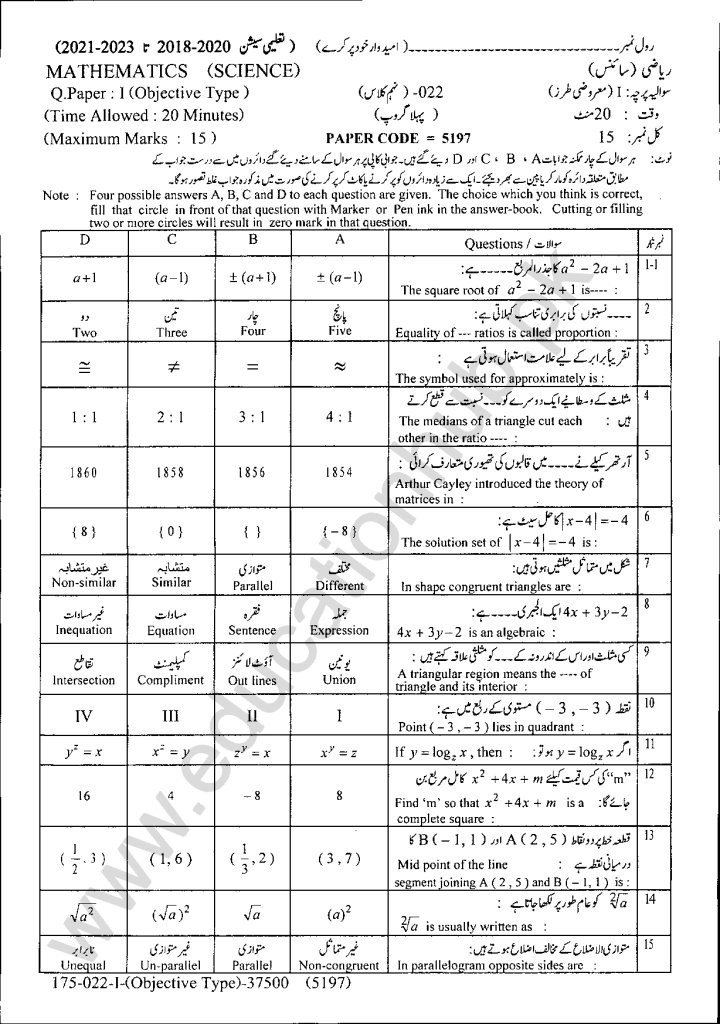 (2021-2023 تا 2018-2020 تعلیمی سیشن) (امیدوار خود پر کرے) رول نمبر
MATHEMATICS (SCIENCE) ریاضی (سائنس)
Q.Paper : I (Objective Type ) 022- (نہم کلاس) سوالیہ پرچہ : I (معروضی طرز)
(Time Allowed : 20 Minutes) (پہلا گروپ) وقت : 20 منٹ
(Maximum Marks : 15 ) PAPER CODE = 5197 کل نمبر : 15
نوٹ: ہر سوال کے چار ممکنہ جوابات A ، B ، C اور D دیئے گئے ہیں۔ جوابی کاپی پر ہر سوال کے سامنے دیئے گئے دائروں میں سے درست جواب کے
مطابق متعلقہ دائرہ کو مارکر یا پین سے بھر دیجئے۔ ایک سے زیادہ دائروں کو پر کرنے یا کاٹ کر پر کرنے کی صورت میں مذکورہ جواب غلط تصور ہو گا۔
Note : Four possible answers A, B, C and D to each question are given. The choice which you think is correct,
fill that circle in front of that question with Marker or Pen ink in the answer-book. Cutting or filling
two or more circles will result in zero mark in that question.
D C B A Questions / سوالات نمبر شمار
a+1 (a−1) ± (a+1) ± (a−1) a² − 2a + 1 کا جذر المربع ----- ہے: 1-1
The square root of a² − 2a + 1 is---- :
دو تین چار پانچ ---- نسبتوں کی برابری تناسب کہلاتی ہے: 2
Two Three Four Five Equality of --- ratios is called proportion :
≅ ≠ = ≈ تقریباً برابر کے لیے علامت استعمال ہوتی ہے : 3
The symbol used for approximately is :
1 : 1 2 : 1 3 : 1 4 : 1 مثلث کے وسطانیے ایک دوسرے کو --- نسبت سے قطع کرتے ہیں : 4
The medians of a triangle cut each
other in the ratio ---- :
1860 1858 1856 1854 آرتھر کیلے نے ---- میں قالبوں کی تھیوری متعارف کرائی : 5
Arthur Cayley introduced the theory of
matrices in :
{ 8 } { 0 } { } { − 8 } |x − 4| = −4 کا حل سیٹ ہے: 6
The solution set of |x−4| = −4 is :
غیر متشابہ متشابہ متوازی مختلف شکل میں متماثل مثلثیں ہوتی ہیں: 7
Non-similar Similar Parallel Different In shape congruent triangles are :
غیر مساوات مساوات فقرہ جملہ 4x + 3y − 2 ایک الجبری ---- ہے: 8
Inequation Equation Sentence Expression 4x + 3y − 2 is an algebraic :
تقاطع کمپلیمنٹ آؤٹ لائنز یونین کسی مثلث اور اس کے اندرونہ کے --- کو مثلثی علاقہ کہتے ہیں : 9
Intersection Compliment Out lines Union A triangular region means the ---- of
triangle and its interior :
IV III II I نقطہ (− 3 , − 3) مستوی کے ربع میں ہے: 10
Point ( − 3 , − 3 ) lies in quadrant :
yᶻ = x xᶻ = y zʸ = x xʸ = z If y = log_z x , then : اگر y = log_z x ہو تو : 11
16 4 − 8 8 "m" کی کس قیمت کیلئے x² + 4x + m کامل مربع بن جائے گا: 12
Find ‘m’ so that x² + 4x + m is a
complete square :
(1/2 , 3) (1, 6) (1/3 , 2) (3 , 7) قطعہ خط پر دو نقاط A ( 2 , 5 ) اور B ( − 1, 1 ) کا درمیانی نقطہ ہے : 13
Mid point of the line
segment joining A ( 2 , 5 ) and B ( − 1, 1 ) is :
√a² (√a)² √a (a)² ²√a کو عام طور پر لکھا جاتا ہے : 14
²√a is usually written as :
نابرابر غیر متوازی متوازی غیر متماثل متوازی الاضلاع کے مخالف اضلاع ہوتے ہیں: 15
Unequal Un-parallel Parallel Non-congruent In parallelogram opposite sides are :
175-022-I-(Objective Type)-37500 (5197)
www.educationhub.pk